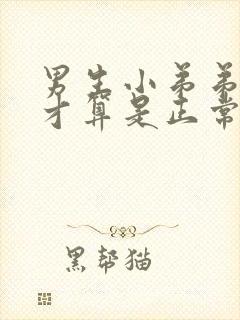 男生小弟弟
才算是正常
黑帮猫